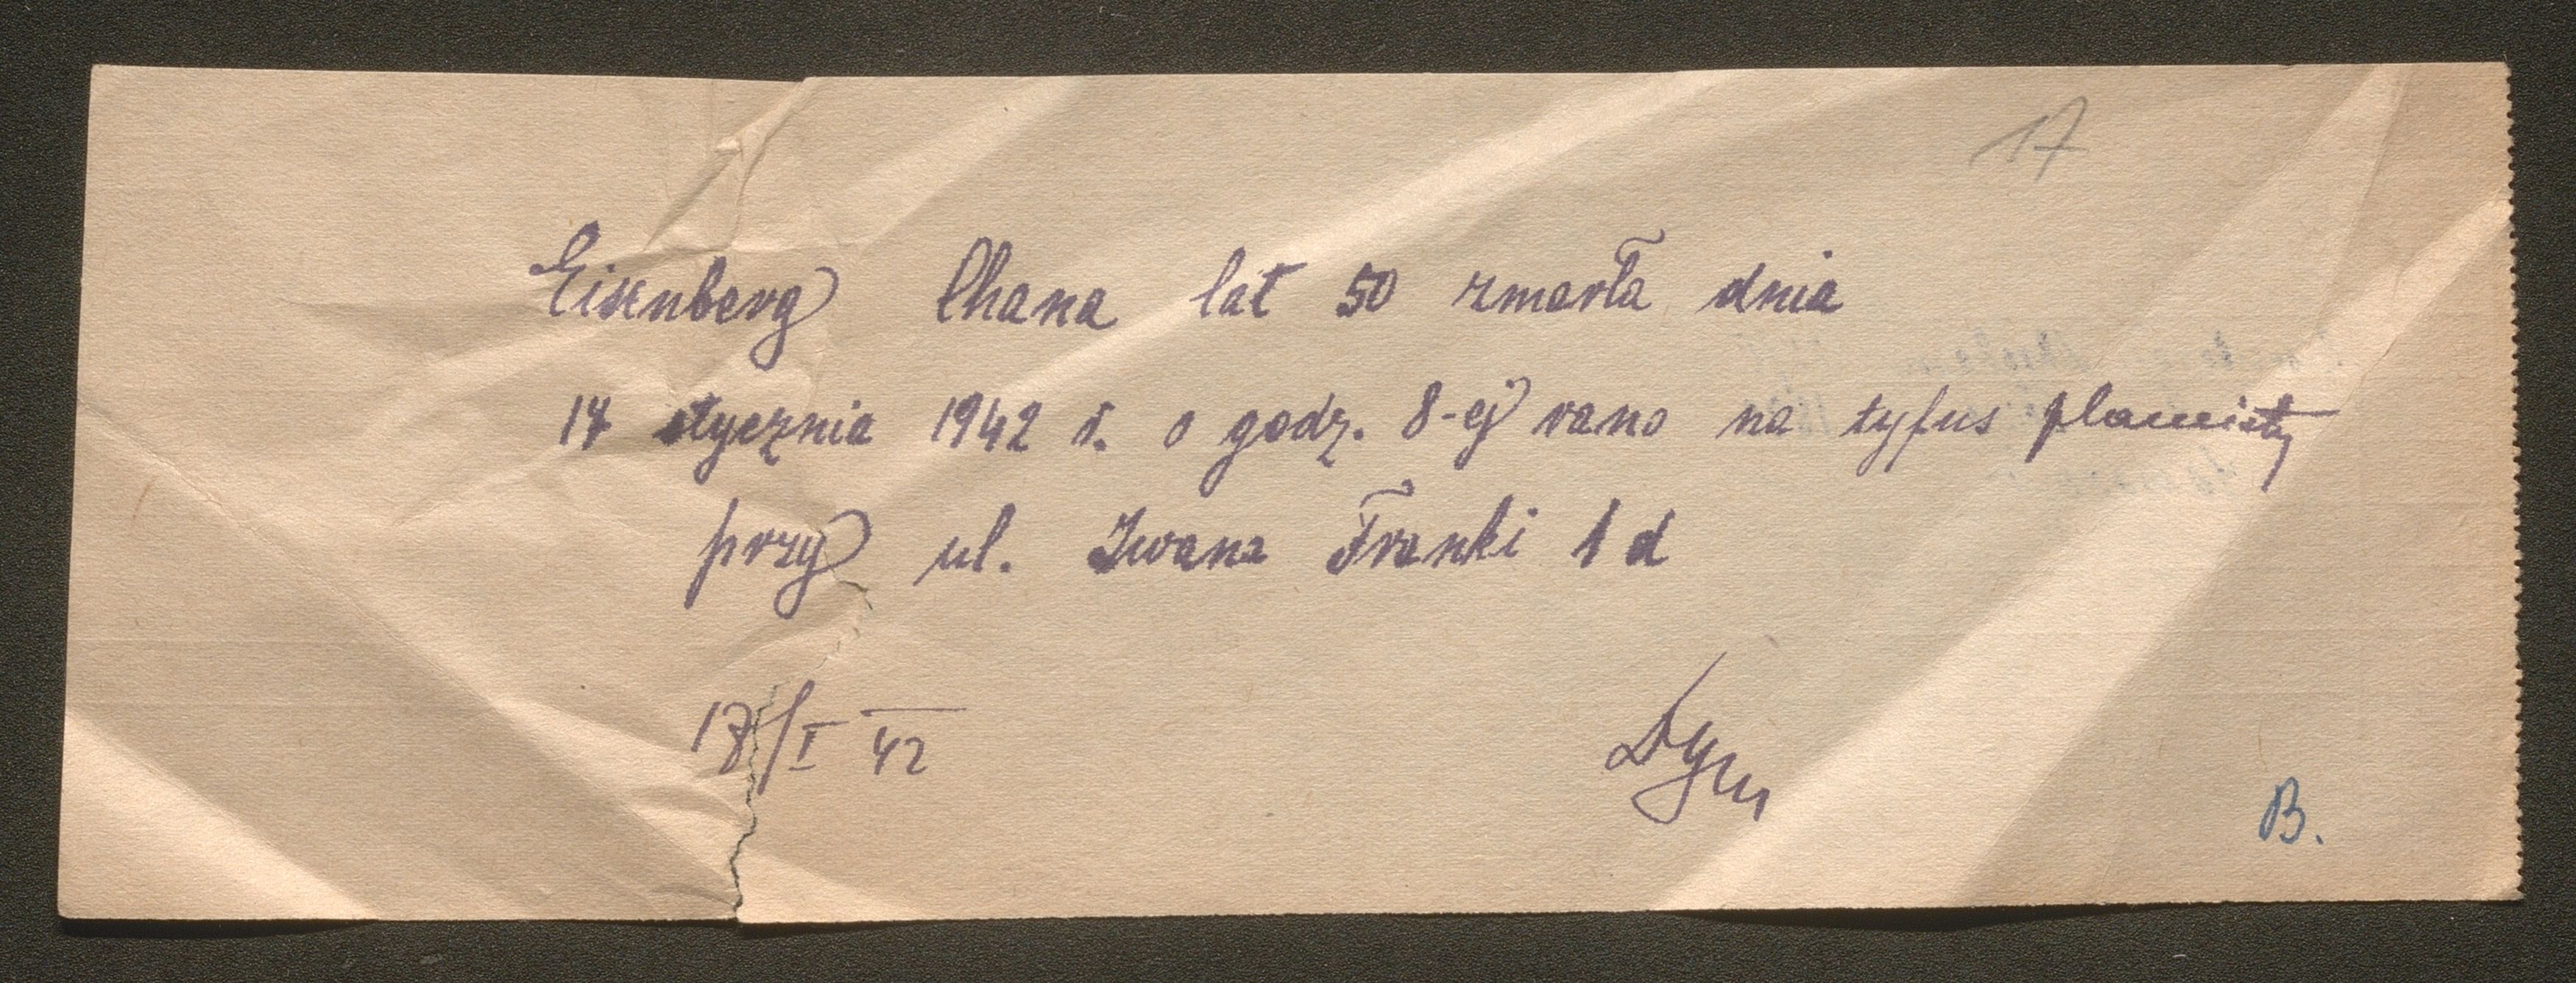 17
Eisenberg Chana lat 50 zmarła dnia
17 stycznia 1942 r. o godz. 8-ej rano na tyfus plamisty
przy ul. Iwana Franki 1 d
17/I 42
Dym
B.